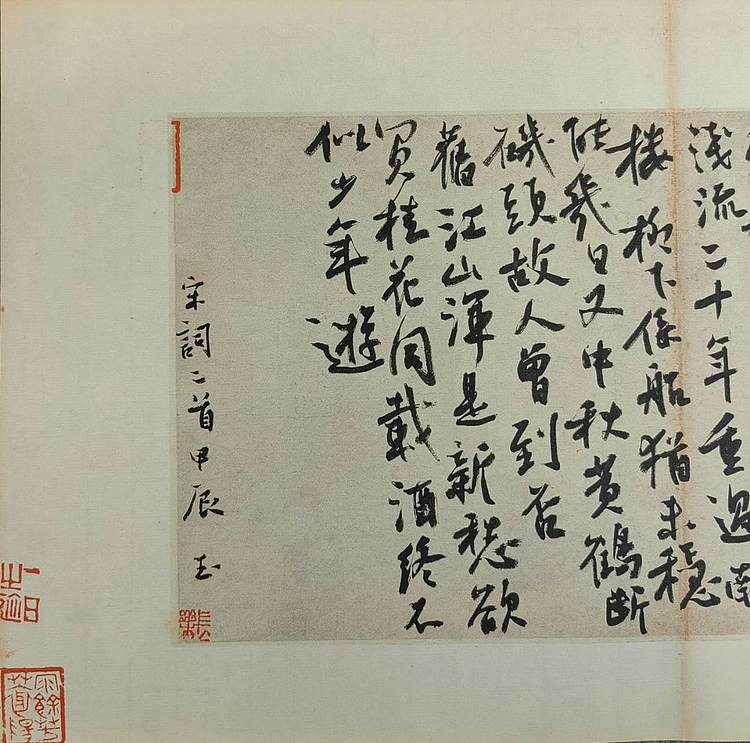 淺流二十年重過南
樓柳下係船猶未穩
能幾日又中秋黃鶴斷
磯頭故人曾到否
舊江山渾是新愁欲
買桂花同載酒終不
似少年遊
宋詞二首甲辰